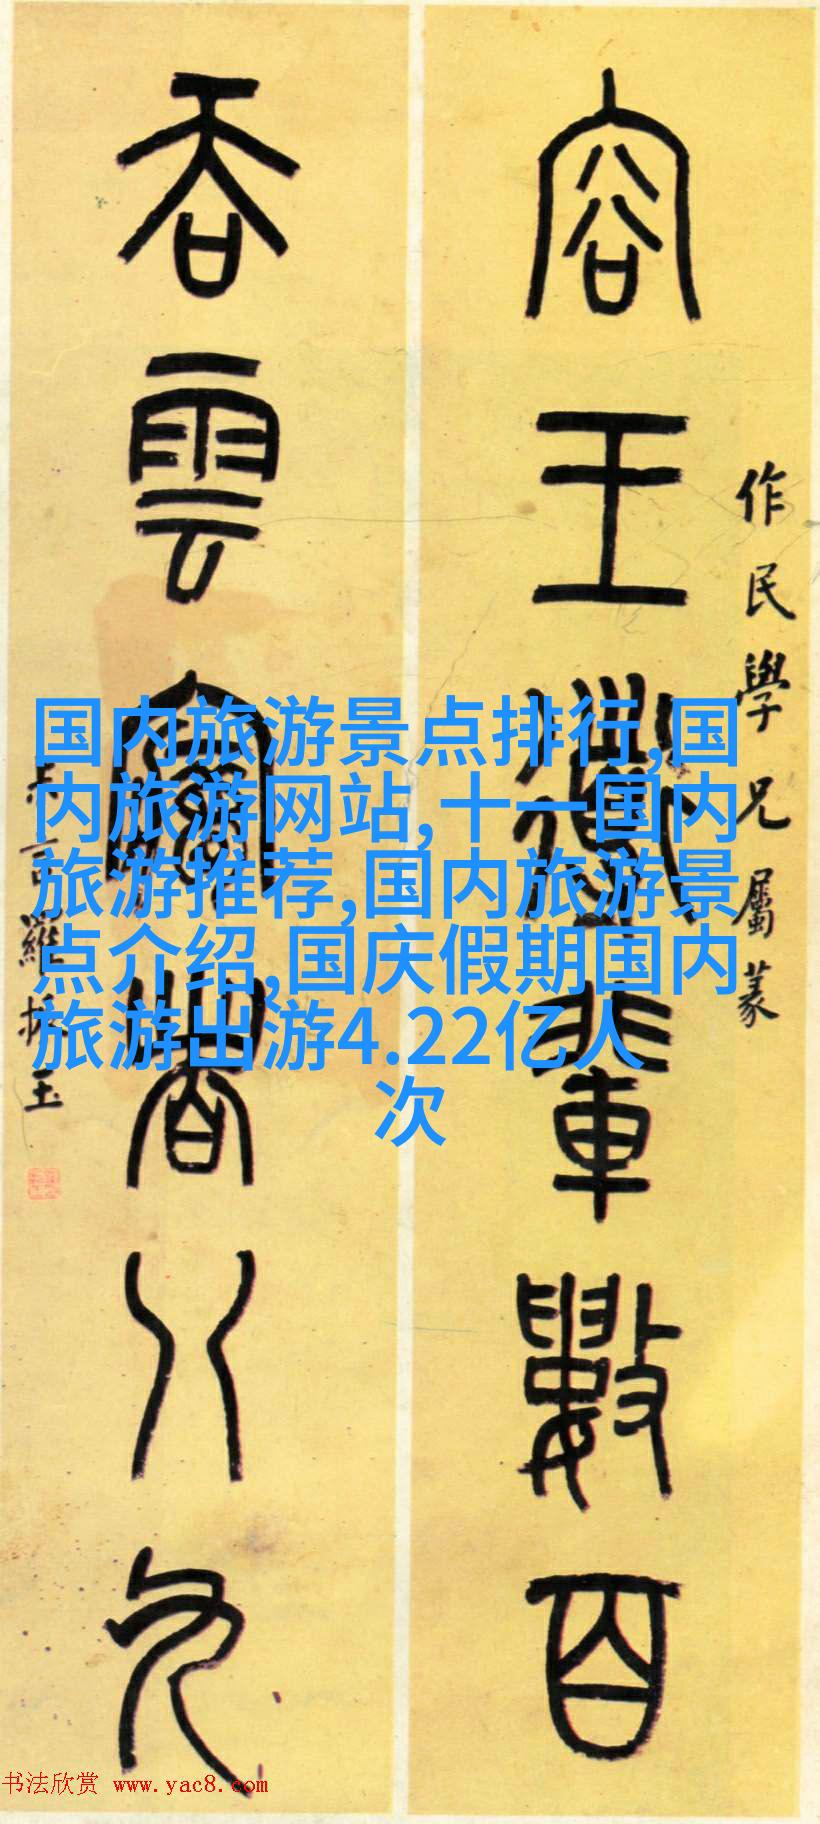 作民學兄屬篆
容王導輩數百
吞雲夢者八九
羅振玉
国内旅游景点排行,国
内旅游网站,十一国内
旅游推荐,国内旅游景
点介绍,国庆假期国内
旅游出游4.22亿人
次
书法欣赏 www.yac8.com